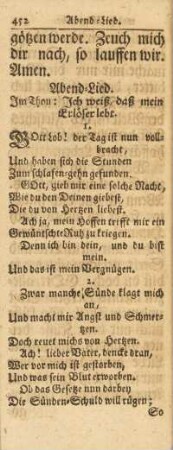 452 Abend-Lied.
götzen werde. Zeuch mich
dir nach, so lauffen wir.
Amen.
Abend-Lied.
Im Thon: Ich weiß, daß mein
Erlöser lebt.
1.
GOtt Lob! der Tag ist nun voll-
bracht,
Und haben sich die Stunden
Zum schlafen-gehn gefunden.
GOtt, gieb mir eine solche Nacht,
Wie du den Deinen giebest,
Die du von Hertzen liebest.
Ach ja, mein Hoffen trifft mir ein
Gewünschte Ruh zu kriegen.
Denn ich bin dein, und du bist
mein.
Und das ist mein Vergnügen.
2.
Zwar manche Sünde klagt mich
an,
Und macht mir Angst und Schmer-
tzen.
Doch reuet michs von Hertzen.
Ach! lieber Vater, dencke dran,
Wer vor mich ist gestorben,
Und was sein Blut erworben.
Ob das Gesetze nun darbey
Die Sünden-Schuld will rügen;
So